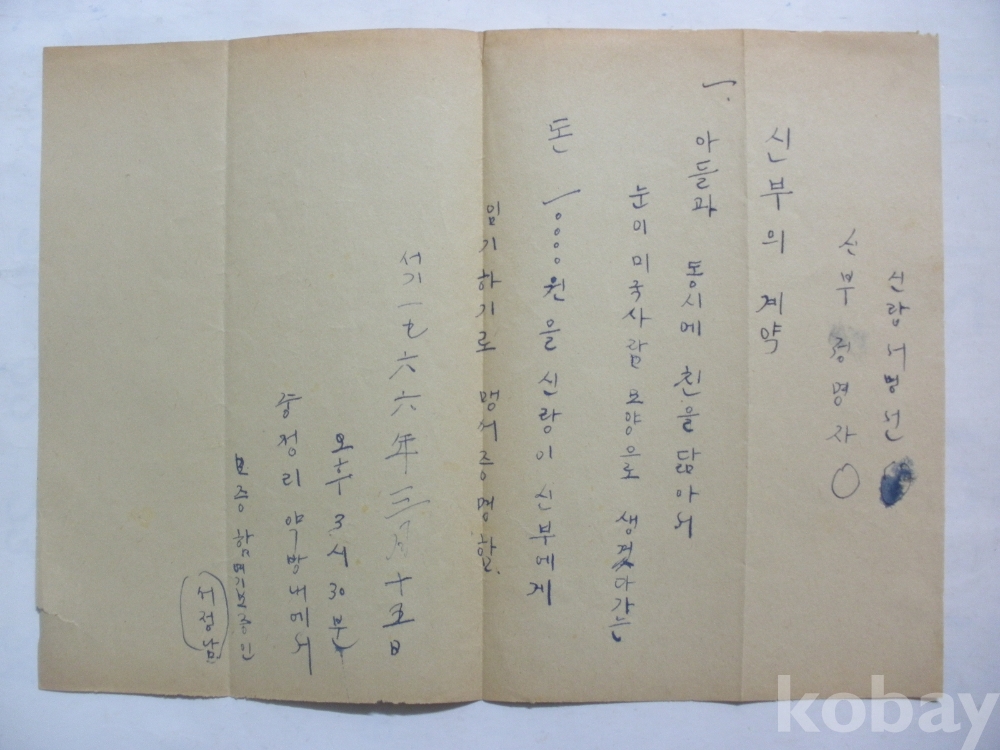 신랑 서명선
신부 정명자
신부의 계약
一. 아들과 동시에 친을 닮아서
눈이 미국사람 모양으로 생겻다가는
돈 一〇〇〇〇원을 신랑이 신부에게
임기하기로 맹서증명함.
서기 一七六六年 三月 十五日
오후 3시 30분
정리 약방내에서
보증함 보증인
서정남
kobay